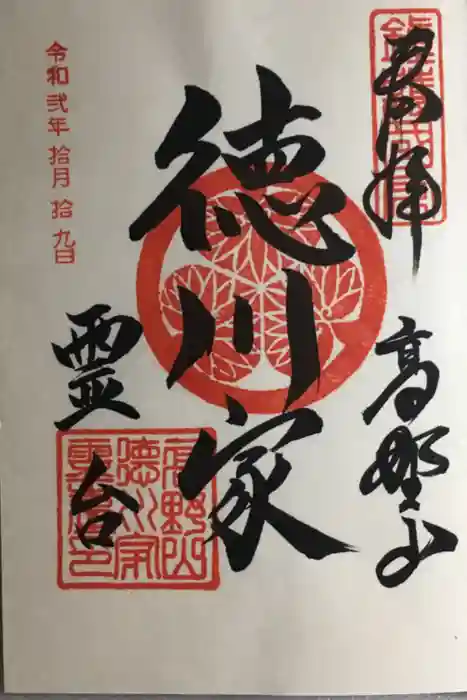 奉拝
高野山
徳川家
霊台
令和弐年 拾月 拾九日
高野山
徳川家
霊台印